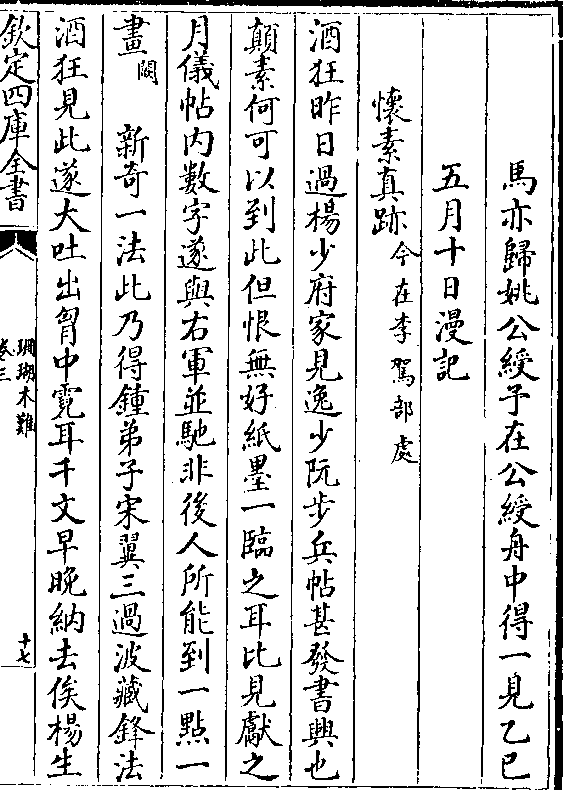 馬亦歸姚公綬予在公綬舟中得一見乙巳
五月十日漫記
懷素真跡今在李駕部處
酒狂昨日過楊少府家見逸少阮步兵帖甚發書興也
顛素何可以到此但恨無好紙墨一臨之耳比見獻之
月儀帖内數字遂與右軍並馳非後人所能到一點一
畫闕 新奇一法此乃得鍾弟子宋翼三過波藏鋒法
酒狂見此遂大吐出胷中霓耳千文早晚納去俟楊生
欽定四庫全書
珊瑚木難
卷三
十七